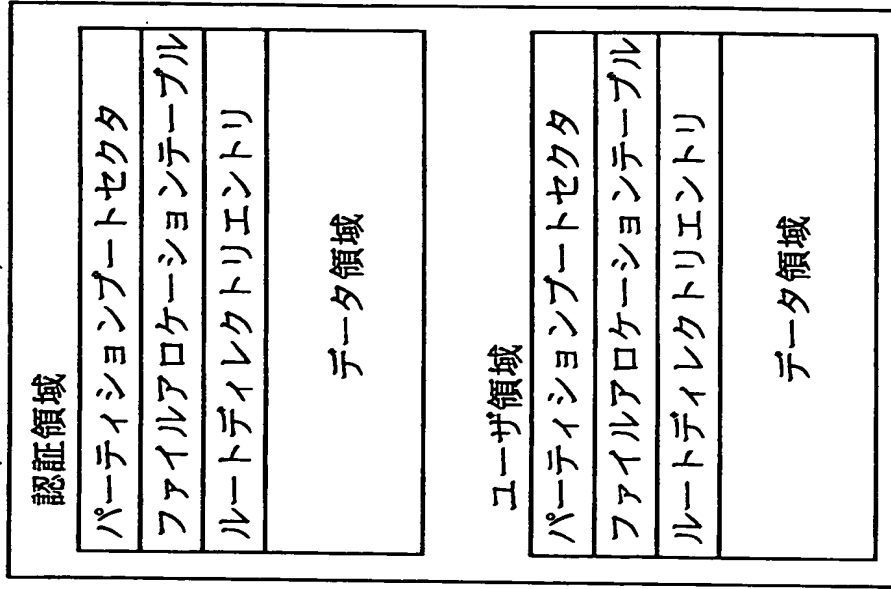 認証領域
パーティションブートセクタ
ファイルアロケーションテーブル
ルートディレクトリエントリ
データ領域
ユーザ領域
パーティションブートセクタ
ファイルアロケーションテーブル
ルートディレクトリエントリ
データ領域